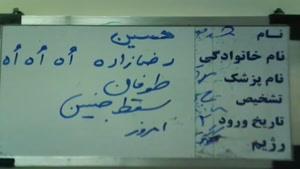 نام حسین
نام خانوادگی رضازاده اُه اُه اُه
نام پزشک طوفان
تشخیص سقط جنین
تاریخ ورود امروز
رژیم